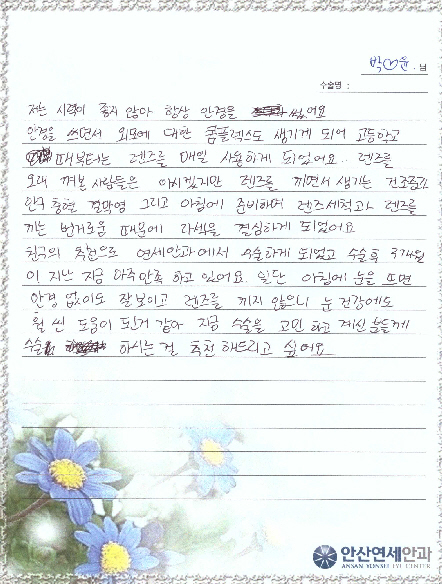 박♡윤 님
수술명 :
저는 시력이 좋지 않아 항상 안경을 썼어요
안경을 쓰면서 외모에 대한 콤플렉스도 생기게 되어 고등학교
때부터는 렌즈를 매일 사용하게 되었어요.. 렌즈를
오래 껴본 사람들은 아시겠지만 렌즈를 끼면서 생기는 건조증과
안구 충혈 결막염 그리고 아침에 준비하며 렌즈세척과 렌즈를
끼는 번거로움 때문에 라섹을 결심하게 되었어요
친구의 추천으로 연세안과에서 수술하게 되었고 수술후 3개월
이 지난 지금 아주만족 하고 있어요. 일단 아침에 눈을 뜨면
안경 없이도 잘보이고 렌즈를 끼지 않으니 눈 건강에도
훨씬 도움이 된거 같아 지금 수술을 고민 하고 계신 분들께
수술 하시는 걸 추천 해드리고 싶어요
안산연세안과
ANSAN YONSEI EYE CENTER